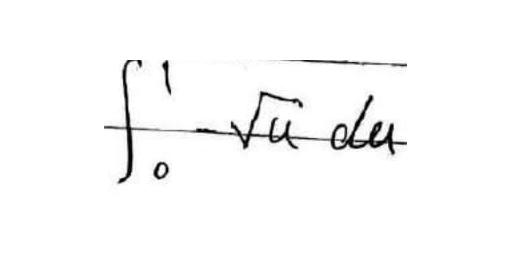 ∫₀¹ -√u du